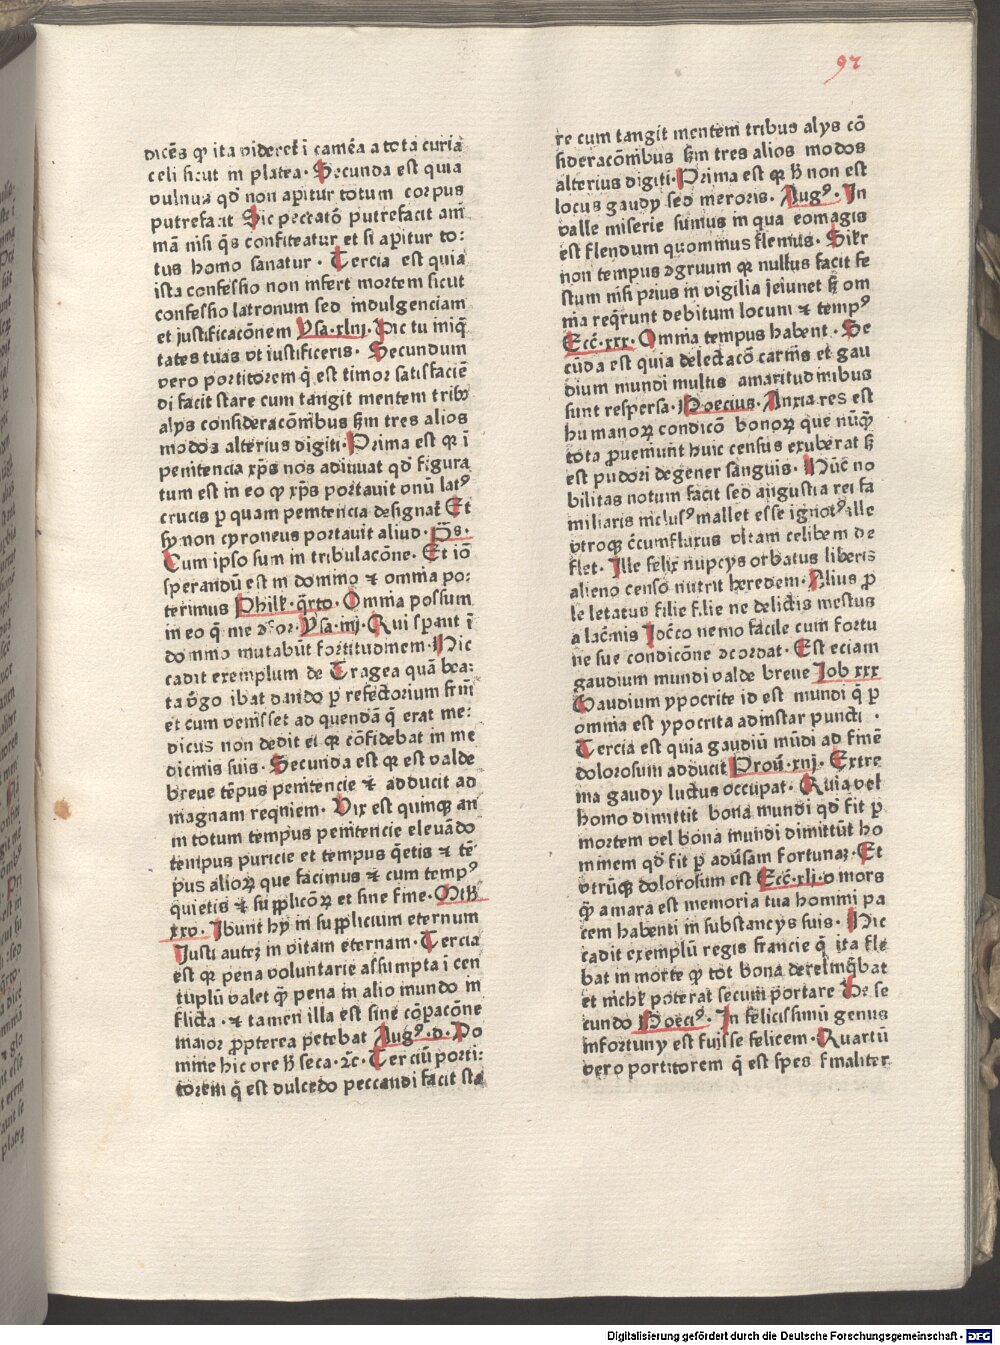 92
dicẽs qp ita videret̄ i camẽa a tota curia
celi sicut in platea. Secunda est quia
vulnus qd̄ non apitur totum corpus
putrefacit Sic peccatō putrefacit am̄
mā nisi q̄s confiteatur et si apitur to:
tus homo sanatur. Tercia est quia
ista confessio non infert mortem sicut
confessio latronum sed indulgenciam
et iustificacōnem Ysa.xliij. Dic tu iniq̄
tates tuas vt iustificeris. Secundum
vero portitorem q̄ est timor satisfaciē
di facit stare cum tangit mentem tribꝯ
alys consideracōnibus sm̄ tres alios
modos alterius digiti. Prima est qr ī
penitencia xp̄s nos adiuuat qd̄ figura
tum est in eo qp xp̄s portauit vnū latꝰ
crucis p quam penitencia designat̄ Et
sy non cyroneus portauit aliud. p̄s.
Cum ipso sum in tribulacōne. Et iō
sperandū est in domino ⁊ omnia po:
terimus Philip̄. q̄rto. Omnia possum
in eo q̄ me ꝯfor. Ysa.xl. Qui spant ī
domino mutabūt fortitudinem. Hic
cadit exemplum de Tragea quā bea:
ta v̄go ibat dando p refectorium frm̄
et cum venisset ad quendā q̄ erat me:
dicus non dedit ei qr cōfidebat in me
dicinis suis. Secunda est qr est valde
breue tēpus penitencie ⁊ adducit ad
magnam requiem. Vix est quinqꝫ an
ni totum tempus penitencie eleuādo
tempus puricie et tempus q̄etis ⁊ tē
pus alioꝝ que facimus ⁊ cum tempꝰ
quietis ⁊ suppliciorꝝ et sine fine. Mth̄
xxv. Ibunt hy in supplicium eternum
Justi autē in vitam eternam. Tercia
est qr pena voluntarie assumpta ī cen
tuplū valet qp̄ pena in alio mundo in
flicta. ⁊ tamen illa est sine cōpacōne
maior propterea petebat Augꝰ. d. Do
mine hic vre h̄ seca. ⁊c. Terciū porti:
torem q̄ est dulcedo peccandi facit sta
re cum tangit mentem tribus alys cō
sideracōnibus sm̄ tres alios modos
alterius digiti. Prima est qr h̄ non est
locus gaudy sed meroris. Augꝰ. In
valle miserie sumus in qua eo magis
est flendum quo minus flemus. Silr
non tempus ꝯgruum qr nullus facit fe
stum nisi prius in vigilia ieiunet sꝫ om
nia reqrunt debitum locum ⁊ tempꝰ
Ecc̄.xxx. Omnia tempus habent. Se
cūda est quia delectacō carnis et gau
dium mundi multis amaritudinibus
sunt respersa. Boecius. Anxia res est
humanoꝝ condicō bonoꝝ que nūqꝫ
tota p̱ueniūt huic census exuberat sꝫ
est pudori degener sanguis. Hūc no
bilitas notum facit sed angustia rei fa
miliaris inclusꝰ mallet esse ignotꝰ ille
vtroqꝫ c̄cumfluxus vitam celibem de
flet. Ille felix nupcys orbatus liberis
alieno censū nutrit heredem. Alius p
le letatus filie f.lie ne delictis mestus
a lac̄mis Jocō nemo facile cum fortu
ne sue condicōne ꝯcordat. Est eciam
gaudium mundi valde breue Job xxx
Gaudium ypocrite id est mundi q̄ p
omnia est ypocrita adinstar puncti .
Tercia est quia gaudiū mūdi ad finē
dolorosum adducit Prou̅.xiij. Extre
ma gaudy luctus occupat. Quia vel
homo dimittit bona mundi qd̄ fit p
mortem vel bona mundi dimittūt ho
minem qd̄ fit p aduersam fortunaꝫ. Et
vtrūqꝫ dolorosum est Ecc̄.xli. o mors
qp̄ amara est memoria tua homini pa
cem habenti in substancys suis. Hic
cadit exemplū regis francie q̄ ita fle
bat in morte qp tot bona derelinq̄bat
et nichil poterat secum portare De se
cundo Boeciꝰ. In felicissimū genus
infortuny est fuisse felicem. Quartū
vero portitorem q̄ est spes finaliter
Digitalisierung gefördert durch die Deutsche Forschungsgemeinschaft - DFG